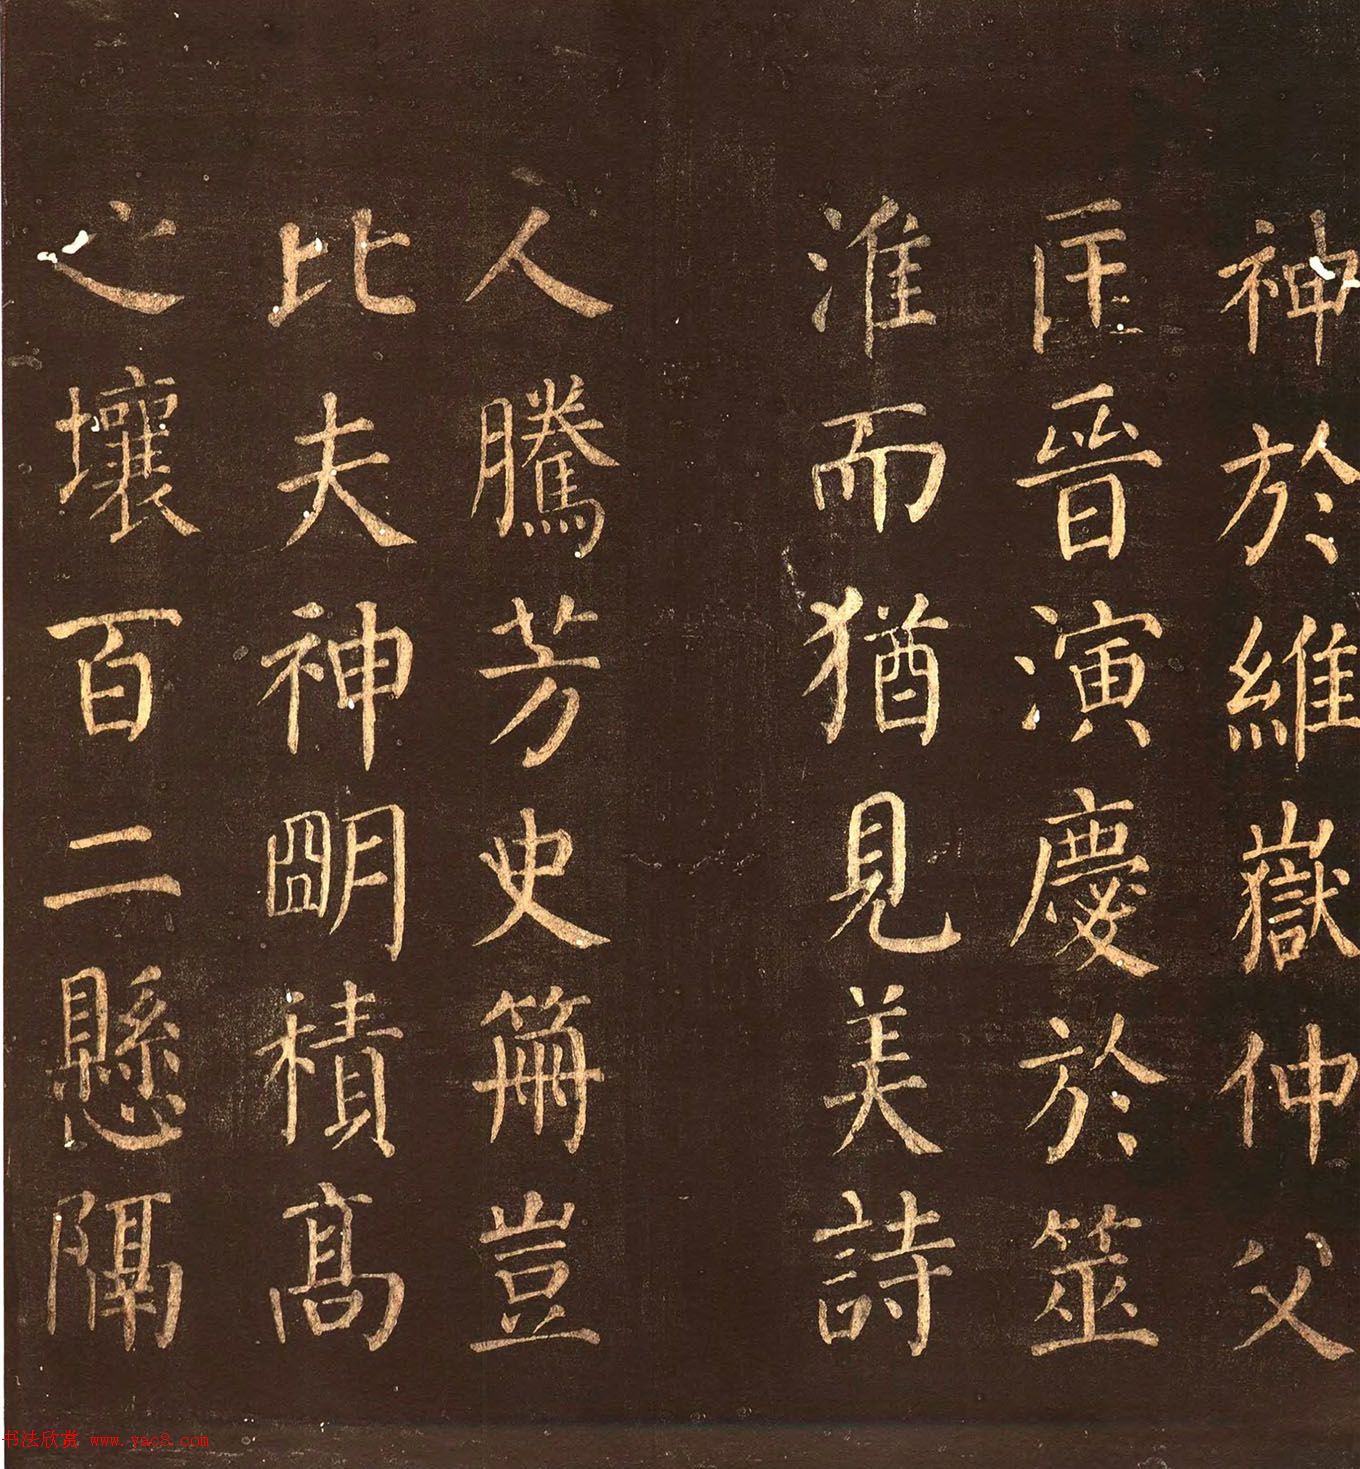 神於維嶽仲父
匡晉演慶於筮
淮而猶見美詩
人騰芳史笧豈
比夫神朙積髙
之壤百二懸隔
书法欣赏 www.yac8.com